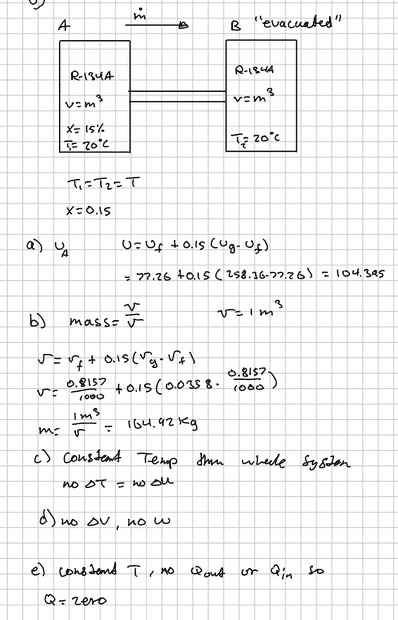 A ṁ B "evacuated"
R-134A R-134A
V=m³ V=m³
x=15%
T₁=20°C T₂=20°C
T₁=T₂=T
x=0.15
a) U_A U=U_f+0.15(U_g-U_f)
=77.26+0.15(258.36-77.26)=104.395
b) mass=V/v V=1m³
v=v_f+0.15(v_g-v_f)
v=0.8157/1000+0.15(0.0358-0.8157/1000)
m=1m³/v=164.92Kg
c) constant Temp then whole system
no ΔT=no Δu
d) no ΔV, no W
e) constant T, no Qout or Qin so
Q=zero